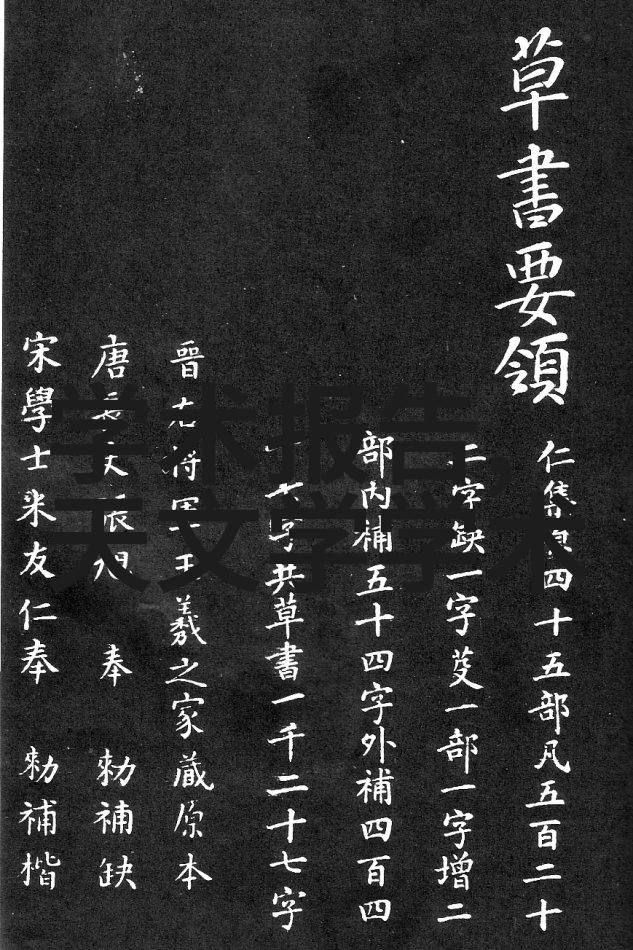 草書要領
仁集四十五部凡五百二十
二字缺一字芟一部一字增二
部内補五十四字外補四百四
十六字共草書一千二十七字
晋右将軍王羲之家藏原本
唐長史張旭 奉 勑補缺
宋學士米友仁奉 勑補楷
学术报告,
天文学学术